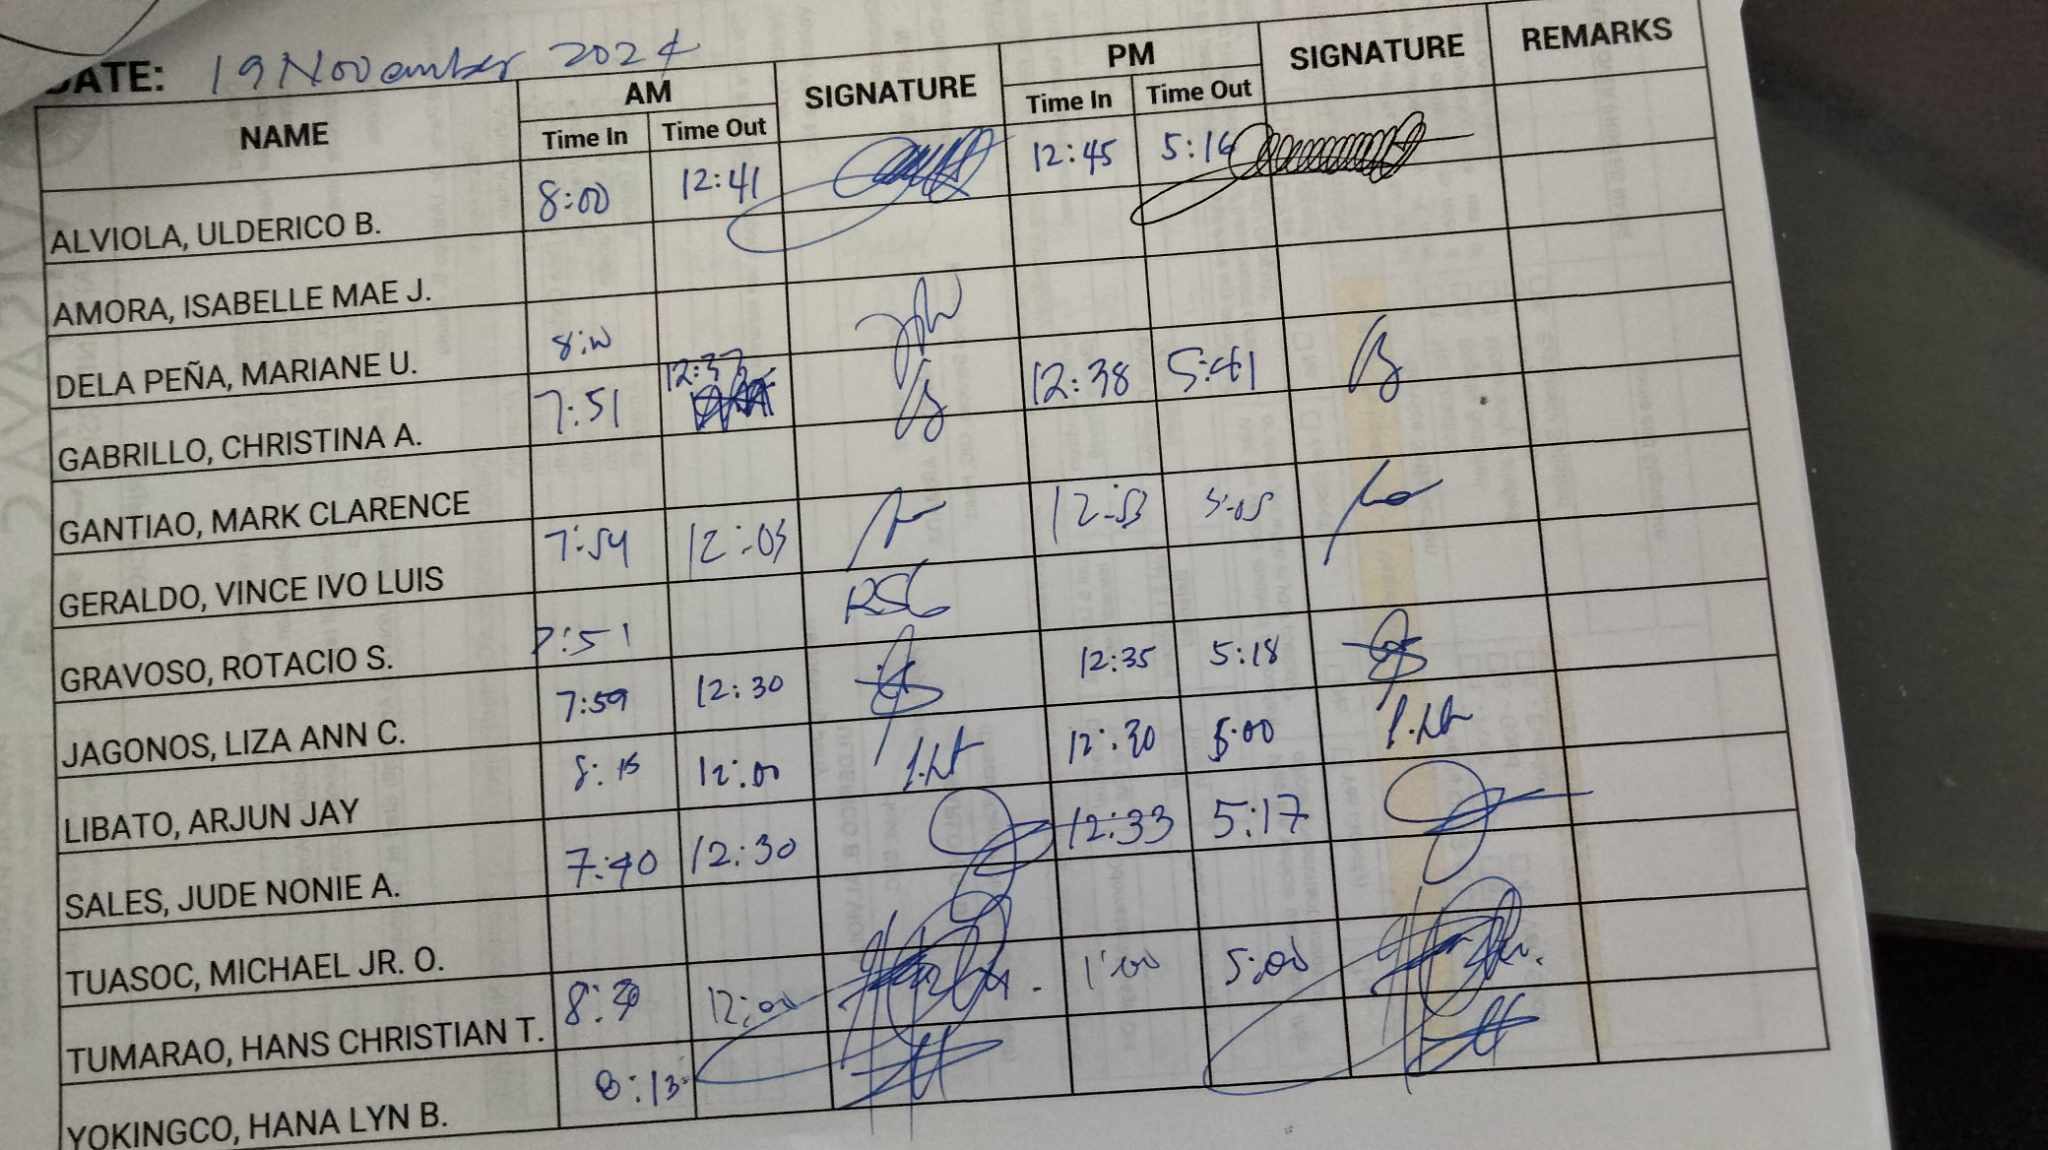 DATE: 19 November 2024
NAME AM SIGNATURE PM SIGNATURE REMARKS
Time In Time Out Time In Time Out
ALVIOLA, ULDERICO B. 8:00 12:41 12:45 5:16
AMORA, ISABELLE MAE J.
DELA PEÑA, MARIANE U.
GABRILLO, CHRISTINA A. 7:51 12:37 12:38 5:41
GANTIAO, MARK CLARENCE
GERALDO, VINCE IVO LUIS 7:54 12:03 12:53 5:05
GRAVOSO, ROTACIO S. 7:51 RSG
JAGONOS, LIZA ANN C. 7:59 12:30 12:35 5:18
LIBATO, ARJUN JAY 8:15 12:00 12:30 5:00
SALES, JUDE NONIE A. 7:40 12:30 12:33 5:17
TUASOC, MICHAEL JR. O.
TUMARAO, HANS CHRISTIAN T. 12:00 1:00 5:00
YOKINGCO, HANA LYN B. 8:13